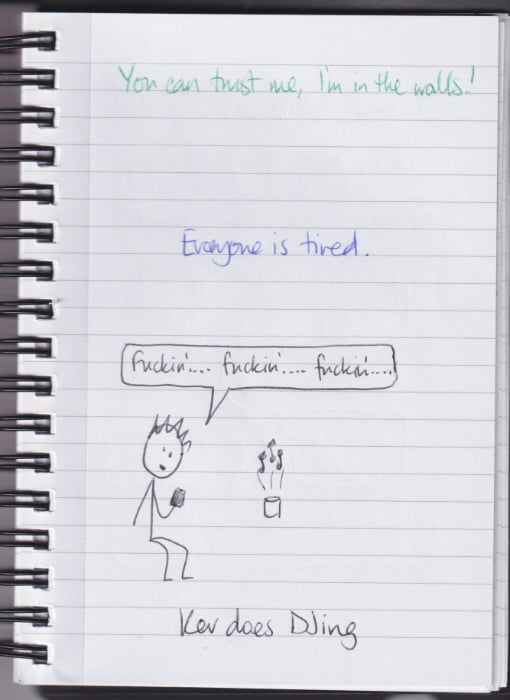 You can trust me, I'm in the walls!
Everyone is tired.
Fuckin'.... fuckin'.... fuckin'....
Kev does DJing